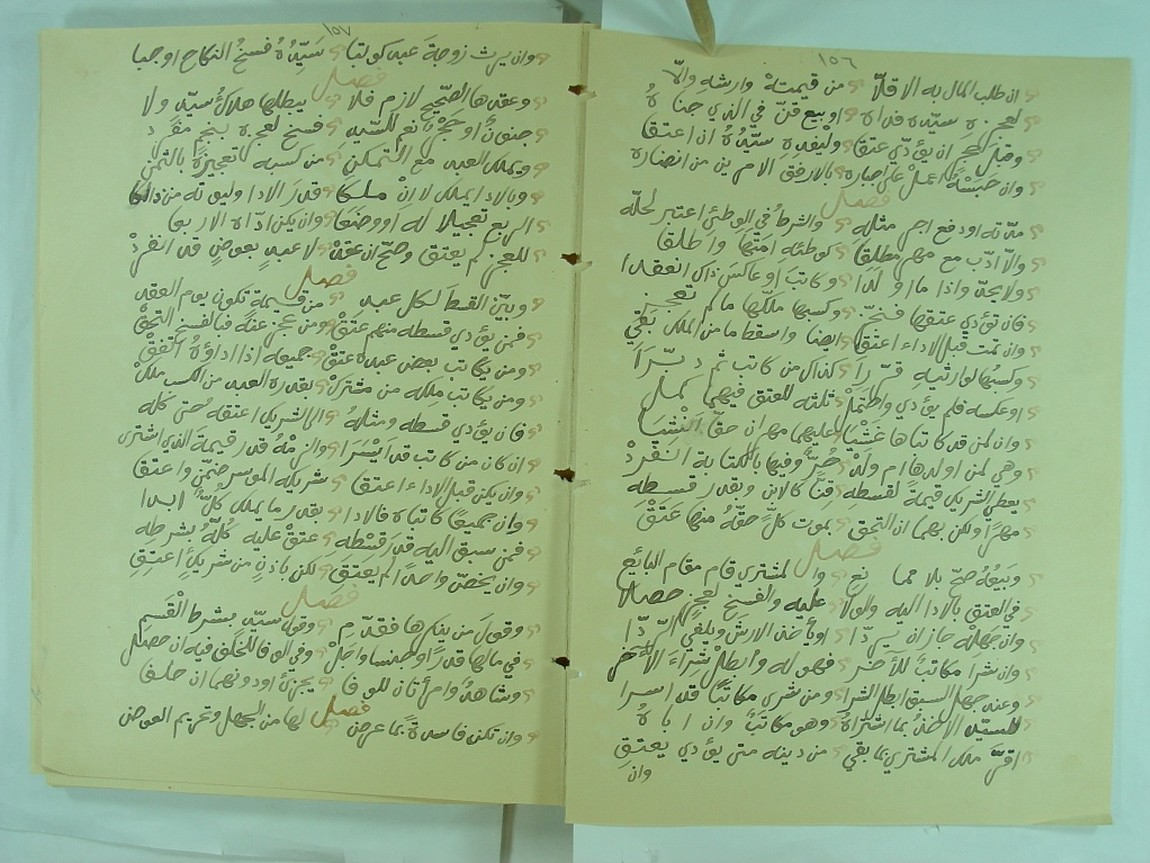 ١٥٦
ان طلب المال به الاقلّا من قيمته وارشه والّا
لعجزه سيّده فداه او بيع قنّ في الذي جناه
وقبل عجز ان يؤدّي عتقا وليفده سيّده ان اعتقا
وان حبسه اعمل على اجباره بالارفق الامرين من انضاره
فصل
مدّته او دفع اجر مثله والشرط في الوطئ اعتبر لحلّه
والّا ادّب مع مهر مطلقا كوطئه امتها واطلقا
ولا يحدّ واذا ما اولدا وكاتب او عاكس ذاك انعقدا
فان تؤدي عتقها فنجّز وكسبها ملّكها ما لم تعجز
وان تمت قبل الاداء اعتق ايضا واسقطا ما من المال بقي
وكسبها لوارثيه قرّرا كذاك من كاتب ثم دبّرا
او عكسه فلم يؤدي واحتمل ثلثه للعتق فيهما كمل
وان لمن قد كاتباها غشيا عليهما مهران حقّا انشيا
وهي لمن اولدها ام ولد حرّ وفيها بالكتابة انفرد
يعطي الشريك قيمة لقسطه قنّا كالابن وبقدر قسطه
مهرا ولكن بهما ان التحق بموت كلّ حقّه منها عتق
فصل
وبيعه صحّ بلا مما نع والمشتري قام مقام البائع
في العتق بالادا اليه والولا عليه والفسخ لعجز حصلا
وان جهله جاز ان يردّا او يأخذ الارش ويلغي الردّا
وان شرا مكاتب للآخر فهو له وابطل شراء الآخر
وعند جهل السبق ابطل الشرا ومن شرى مكاتبا قد اسرا
للسيّد الاخذ بما اشتراه وهو مكاتب وان اباه
اقرّ ملك المشتري بما بقي من دينه متى يؤدي يعتق
وان
١٥٧
وان يرث زوجة عبد كوتبا سيّده فسخ النكاح اوجبا
فصل
وعقدها الصّحيح لازم فلا يبطلها هلاك سيّد ولا
جنون او حجر نعم للسّيد فسخ لعجزه بنجم مفرد
وتملك العبد مع التمكن من كسبه تعجيزه بالثمن
وبالادا يملك لا ان ملكا قدر الادا وليؤته من ذلكا
الربع تعجيلا له او وضعا وان يكن ادّاه الاربعا
للعجز لم يعتق وصحّ ان عقد لاعبد بعوض قد انفرد
فصل
وبيّن القسط لكل عبد من قيمة تكون يوم العقد
فمن يؤدي قسطه منهم عتق ومن عجز عنه فبالفسخ التحق
ومن يكاتب بعض عبده عتق جميعه اذا اداؤه اتفق
ومن يكاتب ملكه من مشترك بقدره العبد من الكسب ملك
فان يؤدي قسطه ومثله الى الشريك اعتقه حتى كله
ان كان من كاتب قد ايسرا والزمه قدر قيمة الذي اشترى
وان يكن قبل الاداء اعتقا شريكه الموسر ضمّن واعتقا
وان جميعا كاتباه فالادا بقدر ما يملك كلّ ابدا
فمن سبق اليه قدر قسطه عتق عليه كلّه بشرطه
وان يخصّ واحدا لم يعتق لكن باذن من شريك اعتق
فصل
وقول من ينكرها فقدّم وقول سيّد بشرط القسم
في مالها قدرا وجنسا واجل وفي الوفا للخلف فيه ان حصل
وشاهد وامرأتان للوفا يجزئ او دونهما ان حلفا
فصل
وان تكن فاسدة بما عرض لها من الجهل وتحريم العوض